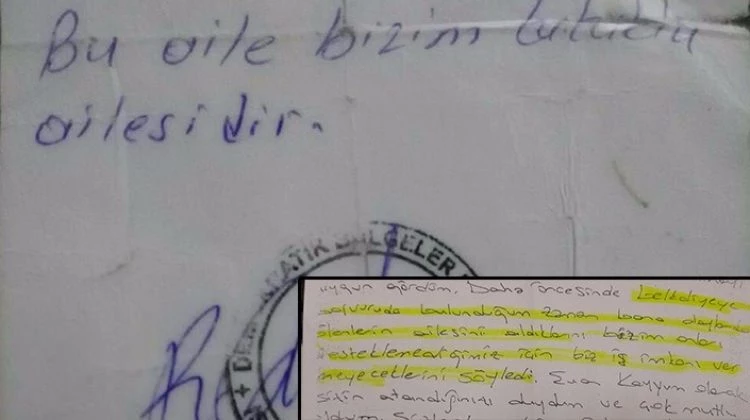 Bu aile bizim tutuklu
ailesidir.
DEMOKRATİK BÖLGELER
Red
uygun gördüm. Daha öncesinde belediyeye
başvuruda bulunduğum zaman bana dağlarda
ölenlerin ailesini aldıklarını bizim onları
desteklemediğimiz için biz iş imkanı ver
meyeceklerini söyledi. Şuan Kayyum olarak
sizin atandığınızı duydum ve çok mutlu